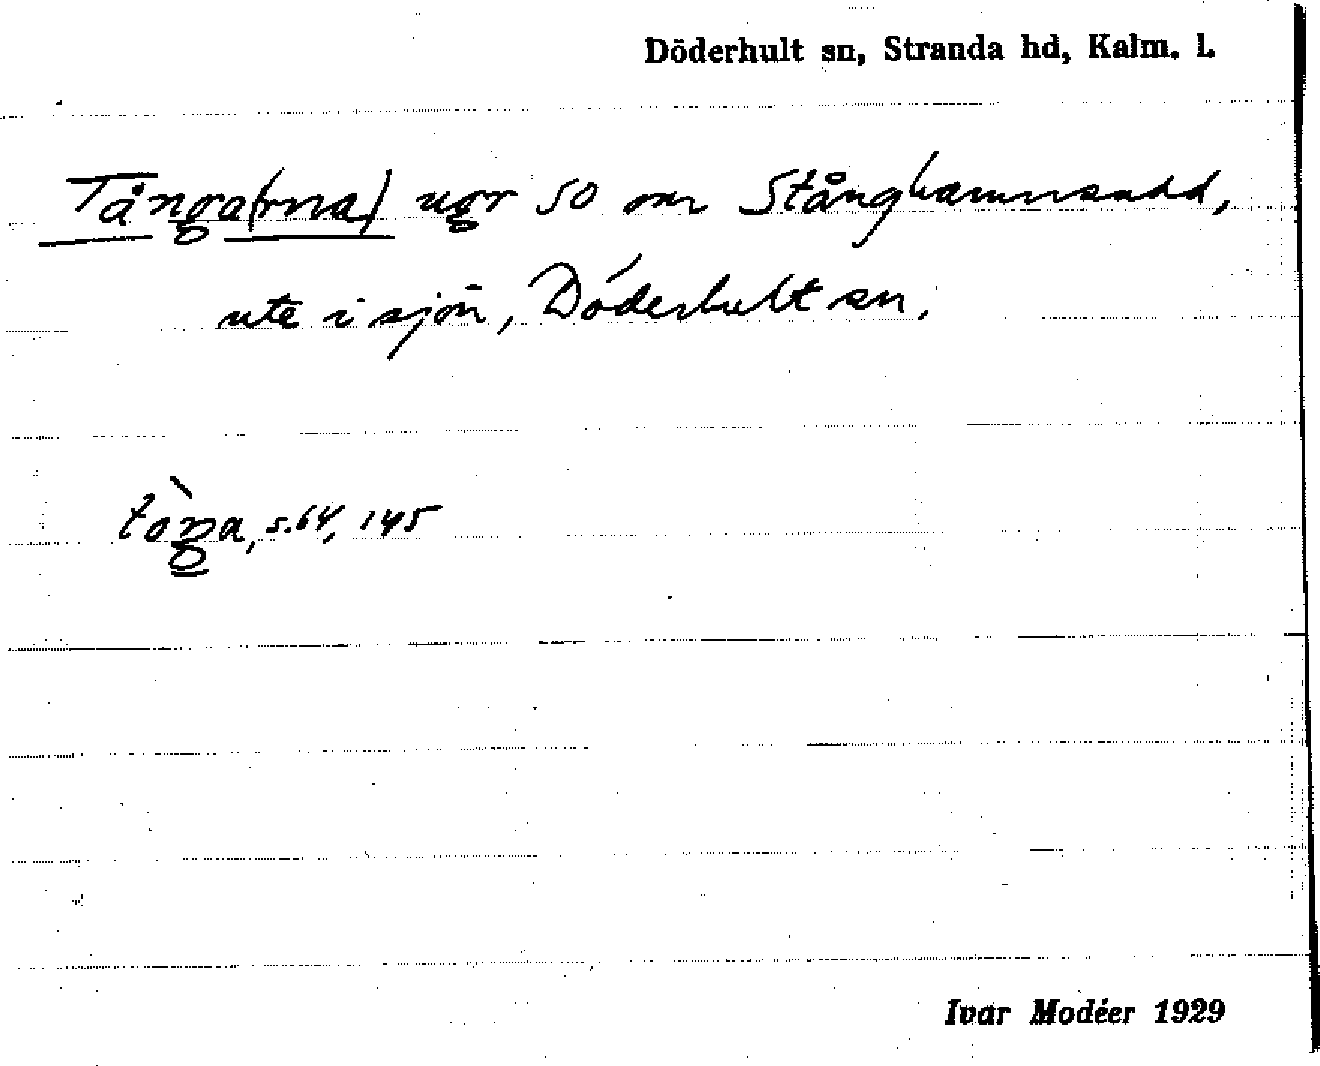 Döderhult sn, Stranda hd, Kalm. l.
Tånga(rna) ugr SO om Stånghamnsudd,
ute i sjön, Döderhult sn.
tòŋa, s. 64, 145
Ivar Modéer 1929